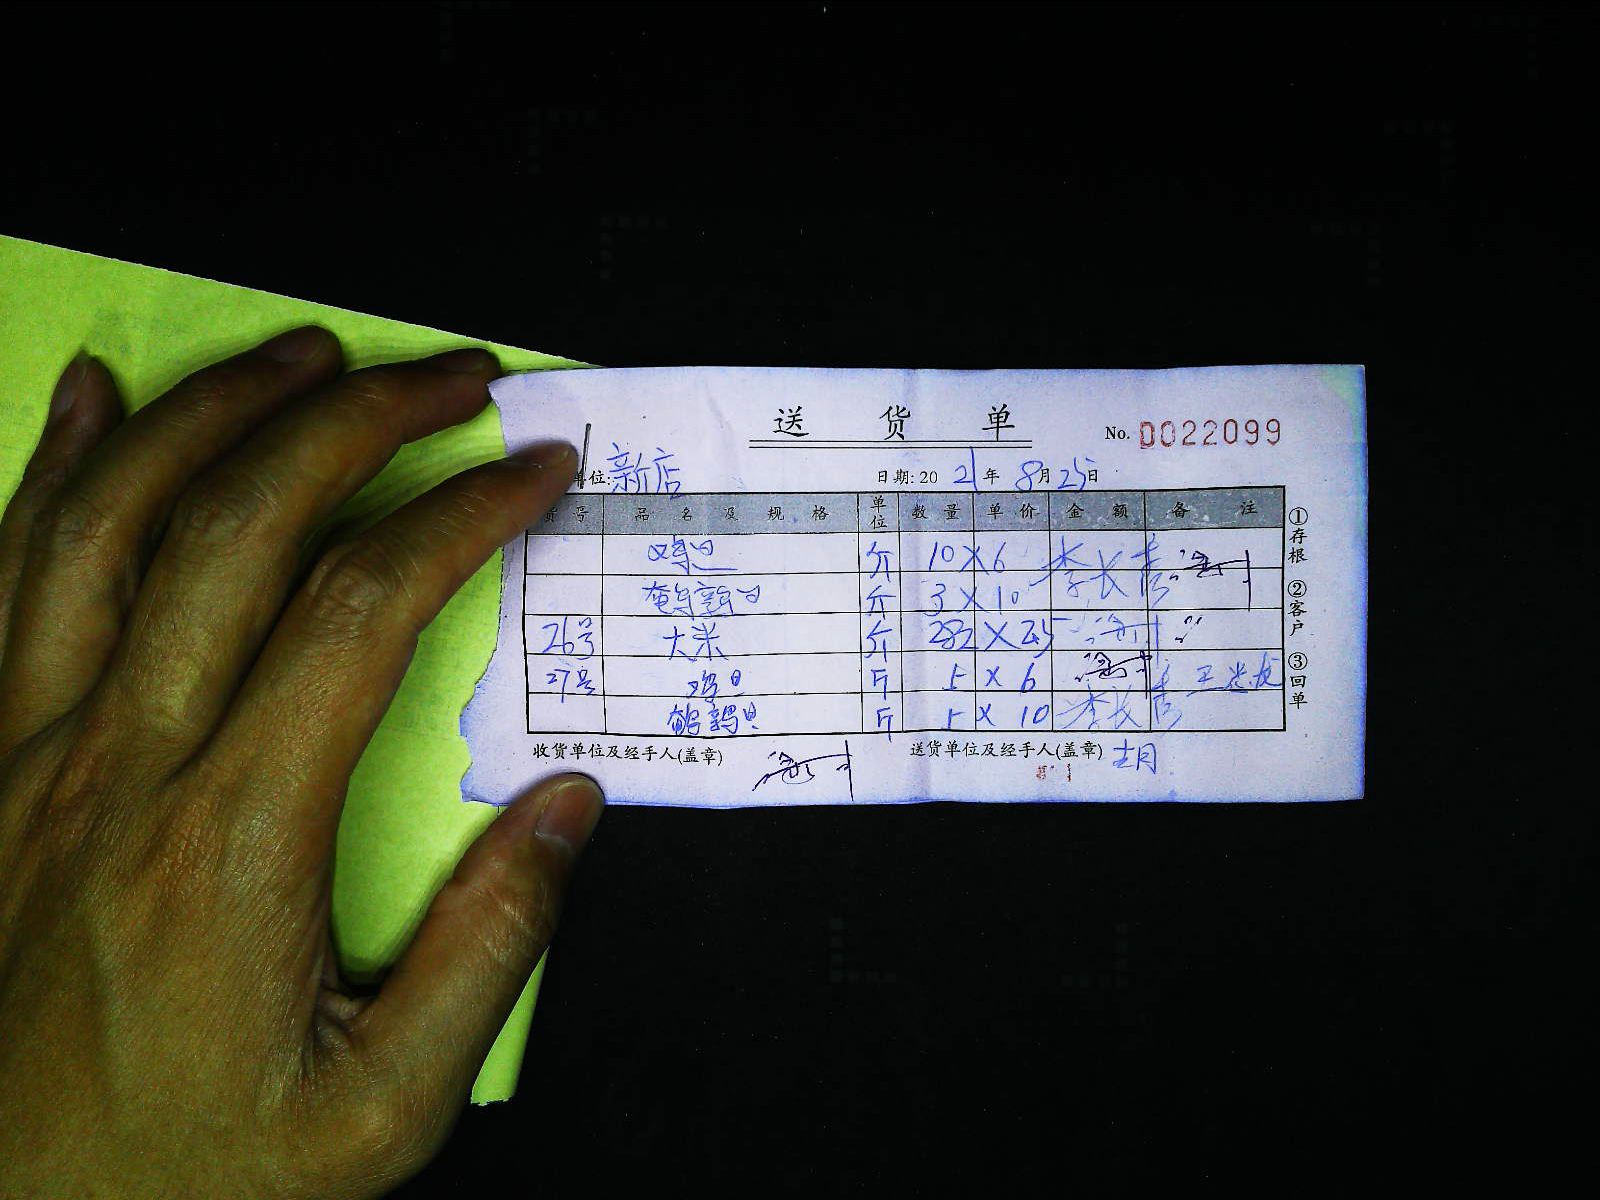 送 货 单
No. 0022099
单位: 新店 日期: 2021年8月25日
货号 品名及规格 单位 数量 单价 金额 备注
鸡旦 斤 10×6 李长青
鹌鹑旦 斤 3×10
26号 大米 斤 282×2.45
27号 鸡旦 斤 5×6
鹌鹑旦 斤 5×10 李长青
①存根 ②客户 ③回单
收货单位及经手人(盖章) 送货单位及经手人(盖章)